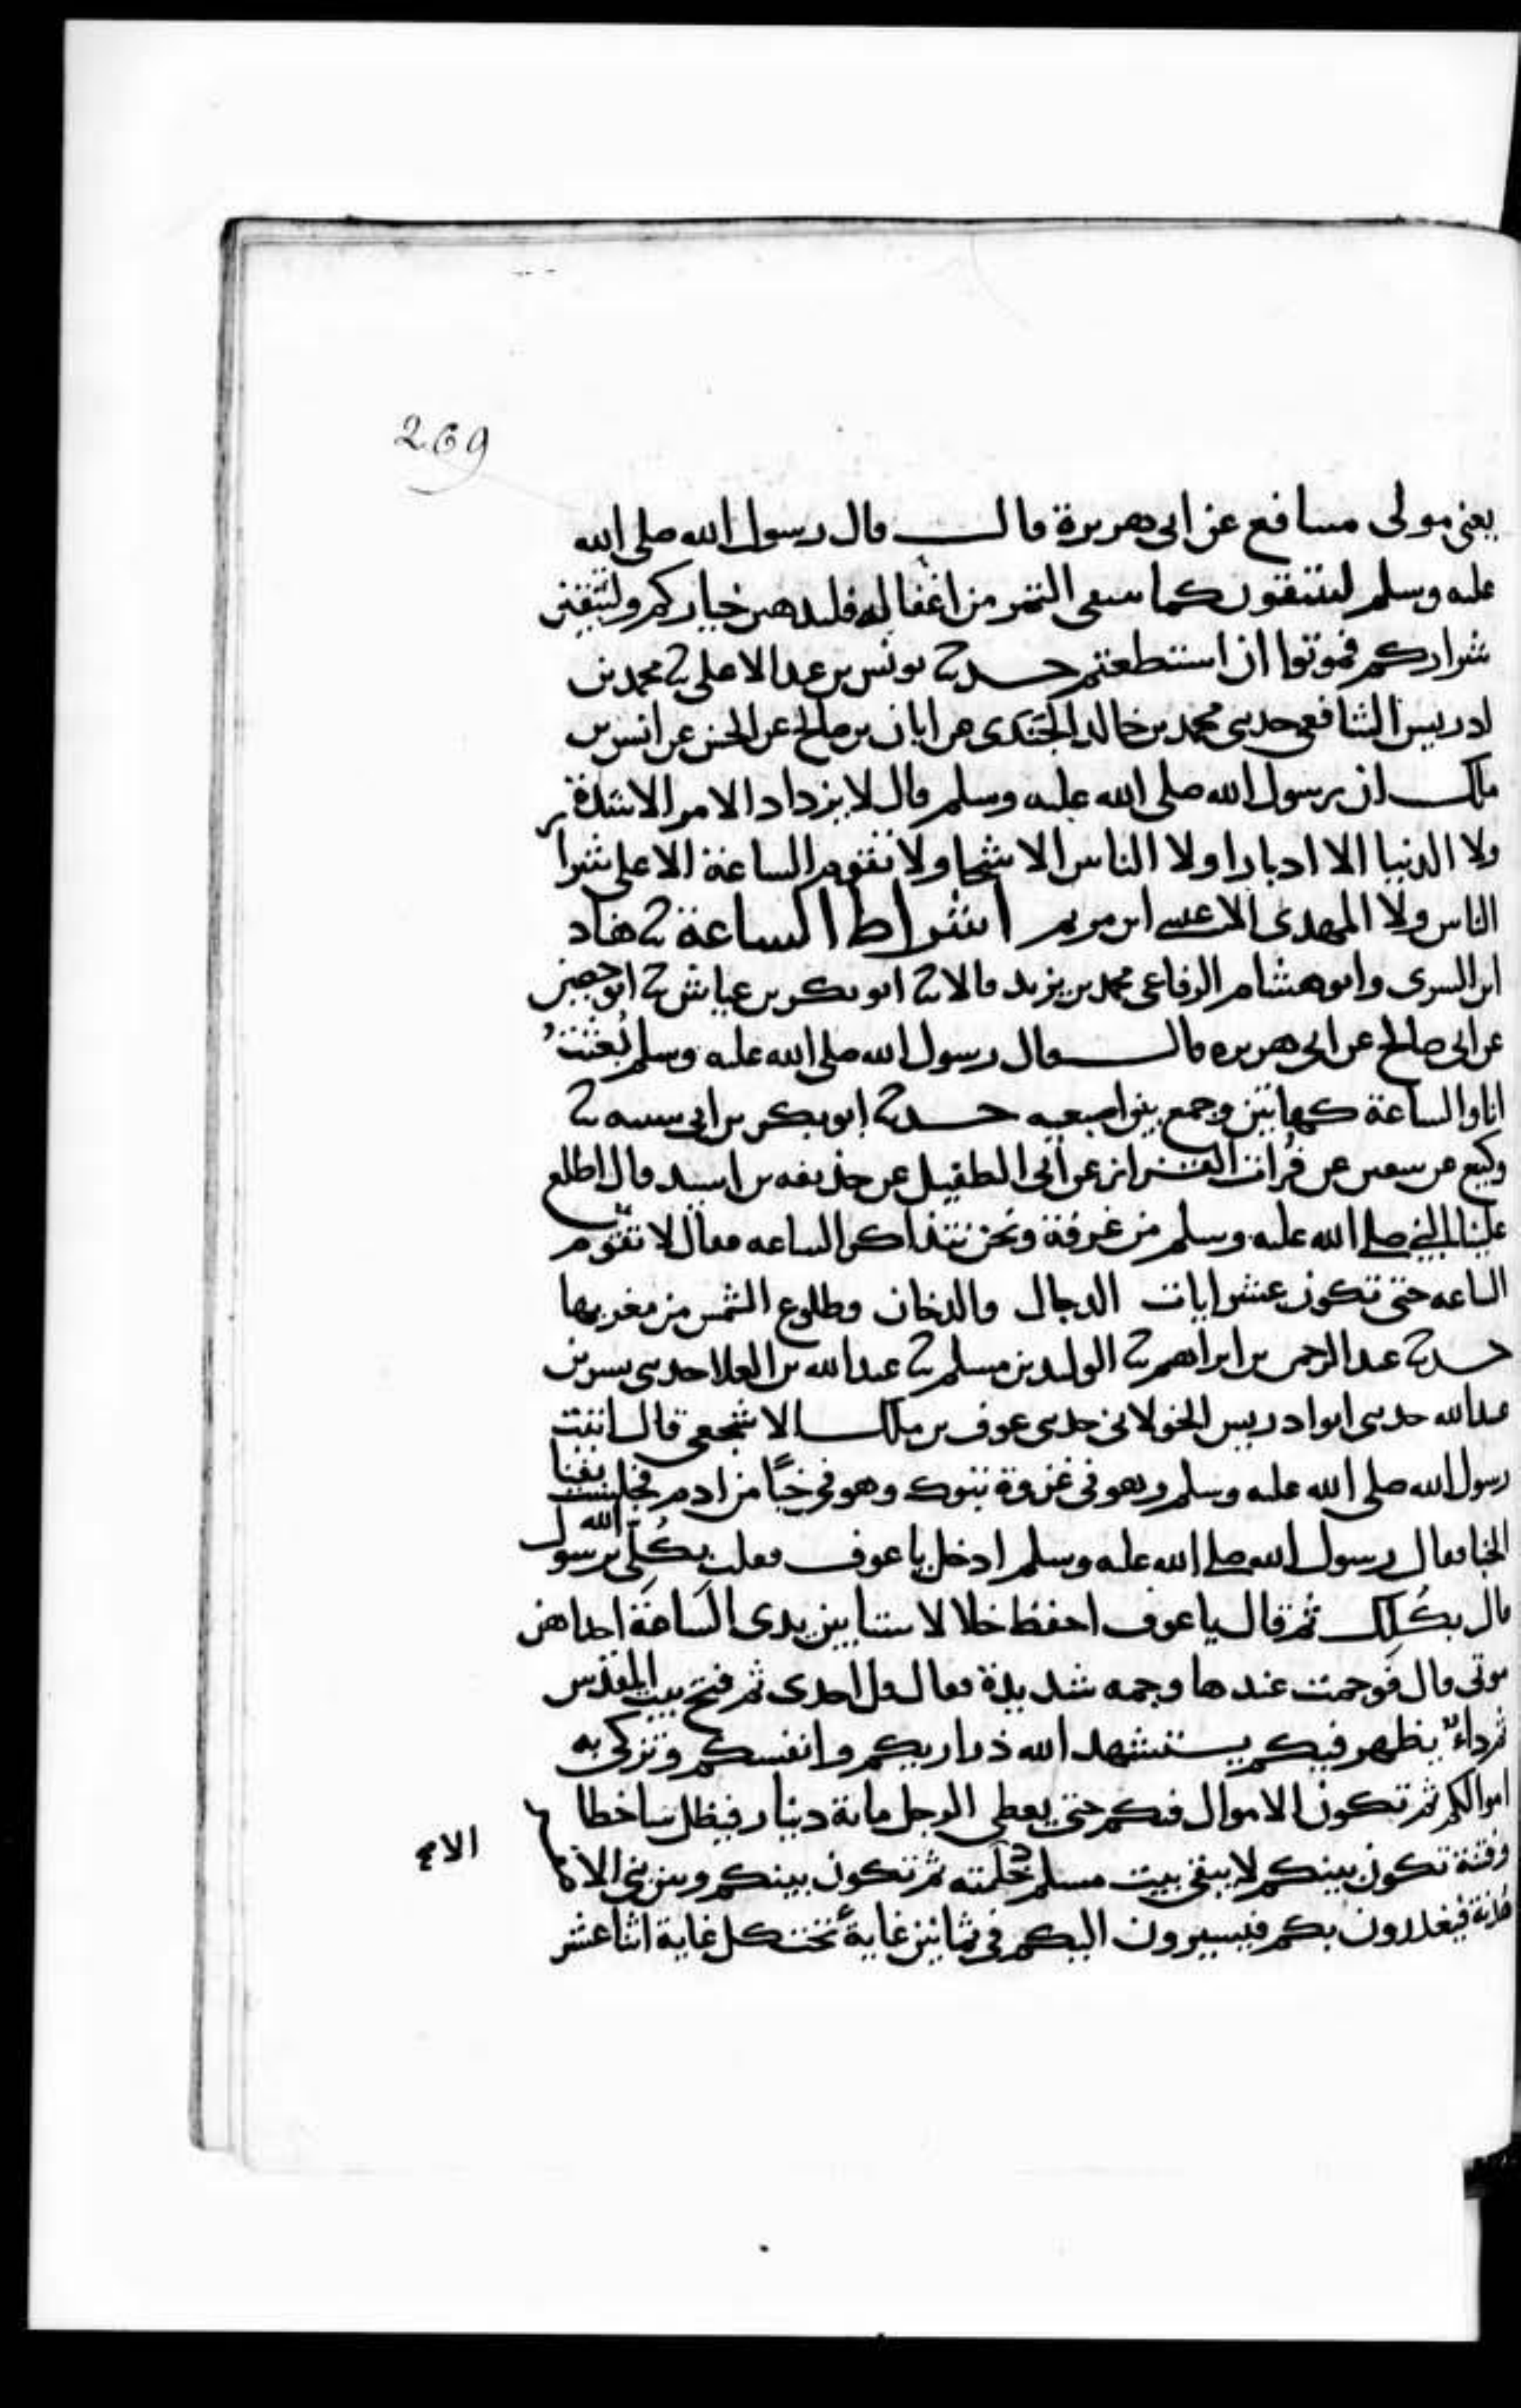 269
يعني مولى مسافع عن ابى هريرة قال قال رسول الله صلى الله
عليه وسلم لتنتقون كما ينتقى التمر من اغفاله فليذهبن خياركم وليبقين
شراركم فموتوا ان استطعتم حدثنا يونس بن عبد الاعلى ثنا محمد بن
ادريس الشافعي حدثني محمد بن خالد الجندي عن ابان بن صالح عن الحسن عن انس بن
ملك ان رسول الله صلى الله عليه وسلم قال لا يزداد الامر الا شدة
ولا الدنيا الا ادبارا ولا الناس الا شحا ولا تقوم الساعة الا على شرار
الناس ولا المهدى الا عيسى ابن مريم اشراط الساعة ثنا هناد
ابن السرى وابو هشام الرفاعى محمد بن يزيد قالا ثنا ابو بكر بن عياش ثنا ابو حصين
عن ابى صالح عن ابى هريره قال قال رسول الله صلى الله عليه وسلم بُعثتُ
انا والساعة كهاتين وجمع بين اصبعيه حدثنا ابو بكر بن ابى شيبه ثنا
وكيع عن سفين عن فُرات القزاز عن ابى الطفيل عن حذيفه بن اسيد قال اطلع
علينا النبي صلى الله عليه وسلم من غرفة ونحن نتذاكر الساعه فقال لا تقوم
الساعه حتى تكون عشر ايات الدجال والدخان وطلوع الشمس من مغربها
حدثنا عبد الرحمن بن ابراهيم ثنا الوليد بن مسلم ثنا عبد الله بن العلا حدثني بسر بن
عبد الله حدثني ابو ادريس الخولاني حدثني عوف بن ملك الاشجعي قال اتيت
رسول الله صلى الله عليه وسلم وهو في غزوة تبوك وهو في خباً من ادم فجلست بفنا
الخبا فقال رسول الله صلى الله عليه وسلم ادخل يا عوف فقلت بكُلّى يرسول الله
قال بكُلك ثم قال يا عوف احفظ خلالا ستا بين يدى الساعة احداهن
موتى قال فوجمت عندها وجمه شديدة فقال قل احدى ثم فتح بيت المقدس
ثم داءٌ يظهر فيكم يستشهد الله ذراريكم وانفسكم وتزكى به
اموالكم ثم تكون الاموال فيكم حتى يعطى الرجل مائة دينار فيظل ساخطا
وفتنة تكون بينكم لا يبقى بيت مسلم الا دخلته ثم تكون بينكم وبين بني الاصفر
هدنة فيغدرون بكم فيسيرون اليكم في ثمانين غاية تحت كل غاية اثنا عشر